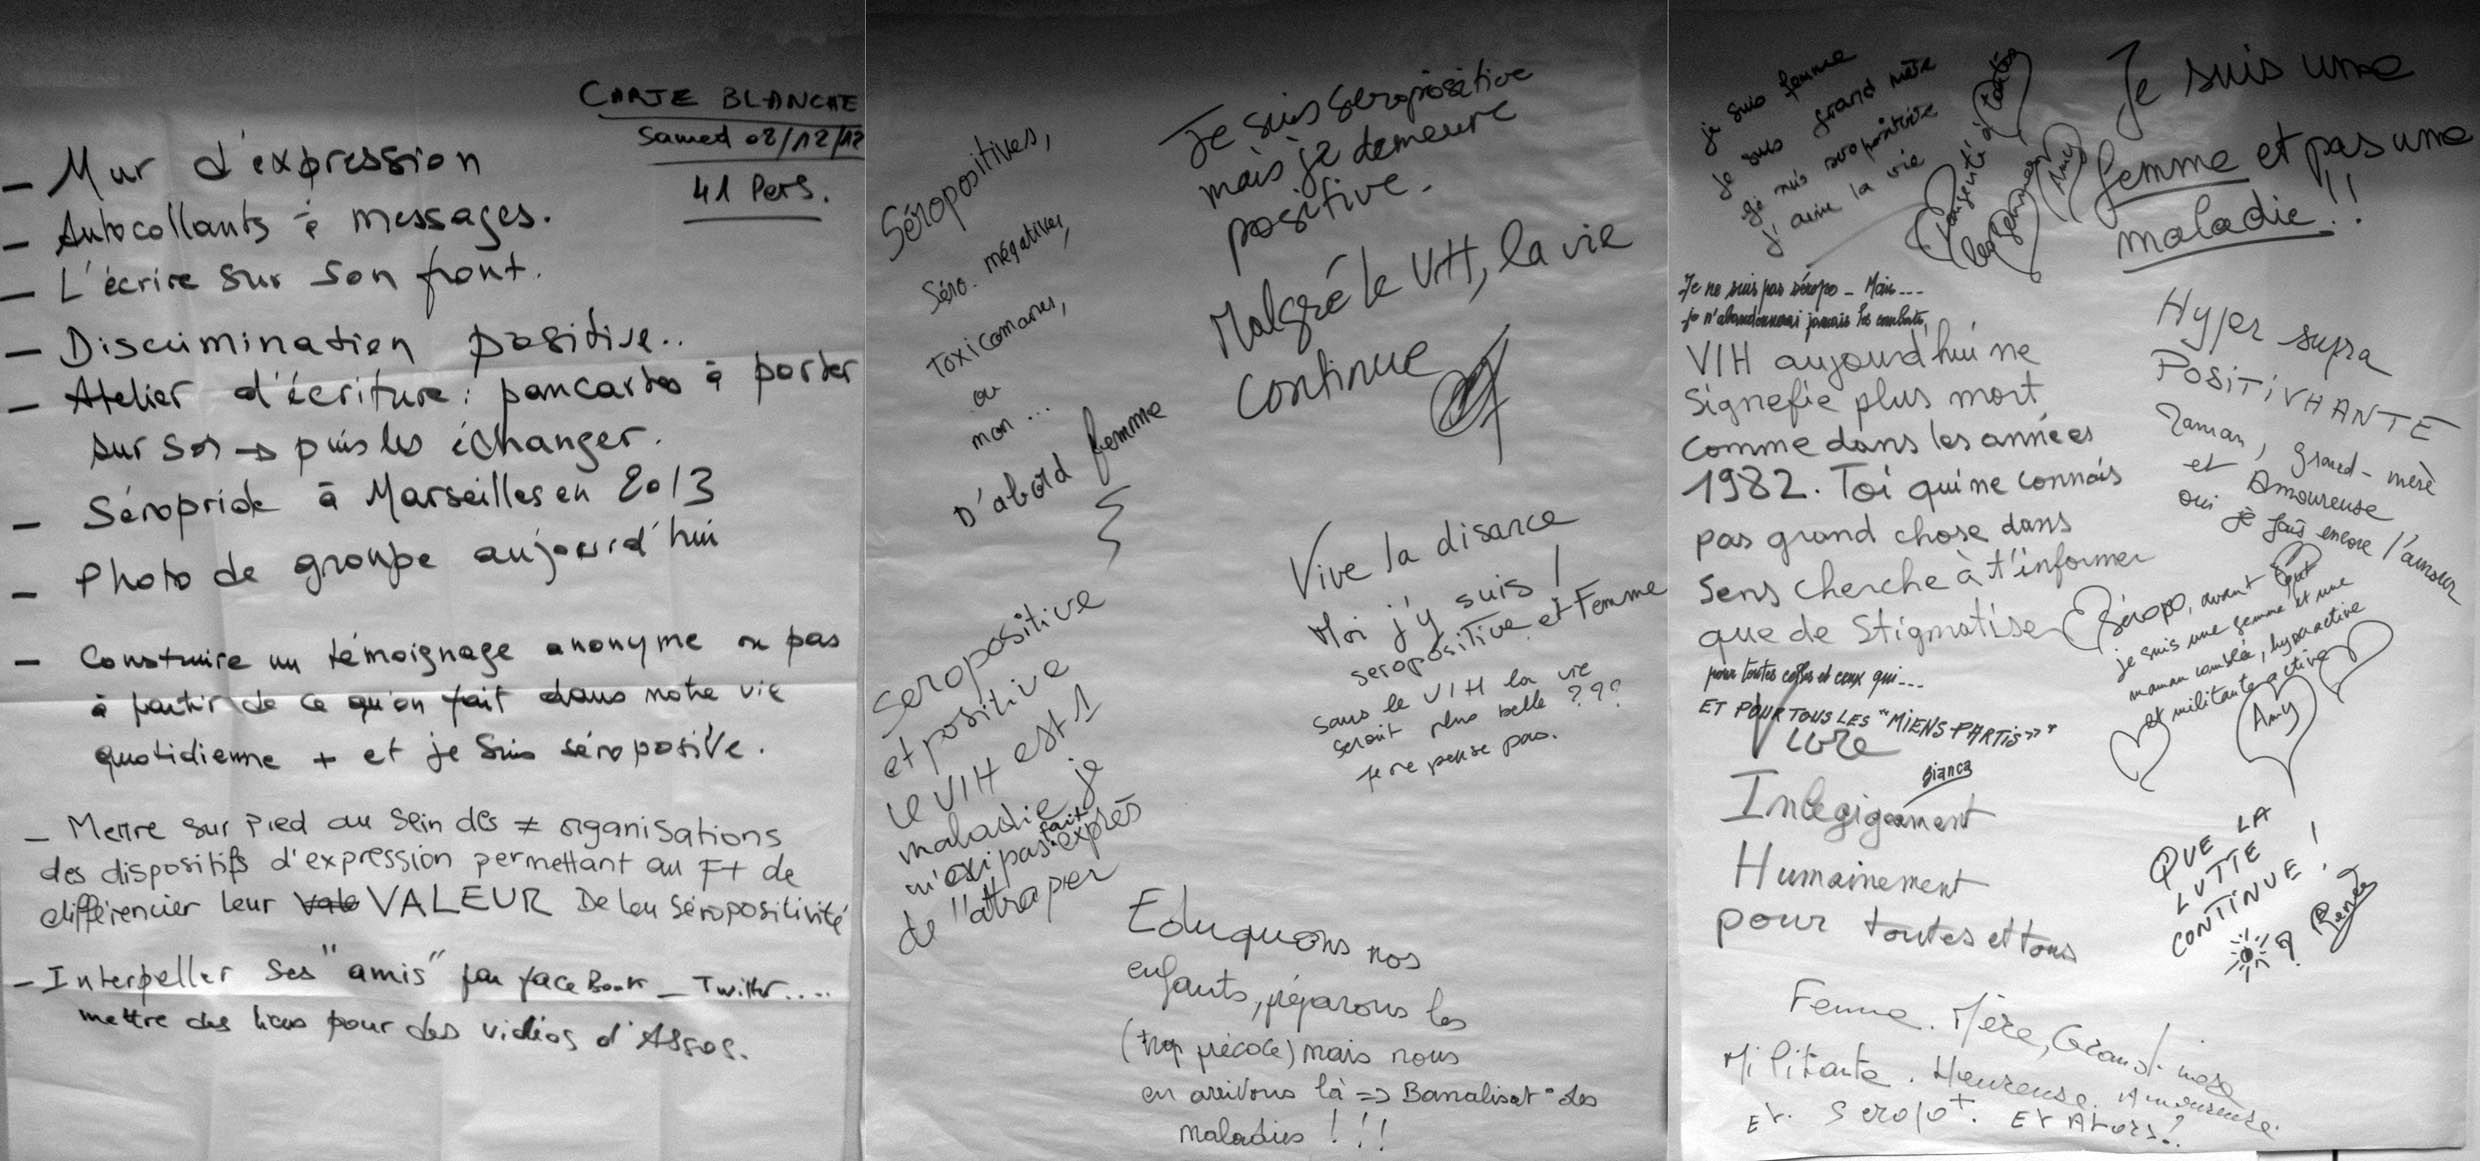 CARTE BLANCHE
Samedi 08/12/12
41 Pers.
– Mur d'expression
– Autocollants à messages.
– L'écrire sur son front.
– Discrimination positive..
– Atelier d'écriture : pancartes à porter
sur soi → puis les échanger.
– Séropride à Marseilles en 2013
– Photo de groupe aujourd'hui
– Construire un témoignage anonyme ou pas
à partir de ce qu'on fait dans notre vie
quotidienne + et je suis séropositive.
– Mettre sur pied au sein des ≠ organisations
des dispositifs d'expression permettant au F+ de
différencier leur VALEUR De leu séropositivité
– Interpeller ses "amis" par faceBook – Twitter....
mettre des liens pour des vidéos d'Assos.
Séropositives,
Séro. négatives,
Toxicomanes,
ou
non ...
D'abord femme
Je suis seropositive
mais je demeure
positive.
Malgré le VIH, la vie
continue
Vive la disance
Moi j'y suis !
seropositive et Femme
sans le VIH la vie
serait plus belle ???
Je ne pense pas.
seropositive
et positive
le VIH est 1
maladie je
n'ai pas fait exprés
de l'attraper
Eduquons nos
enfants, préparons les
(trop précoce) mais nous
en arrivons là => Banalisat° des
maladies !!!
je suis femme
je suis grand mère
je suis séropositive
j'aime la vie
Amy
Je suis une
femme et pas une
maladie !!
Je ne suis pas séropo – Mais ---
je n'abandonnerai jamais les combats,
VIH aujourd'hui ne
signefie plus mort
comme dans les années
1982. Toi qui ne connais
pas grand chose dans
sens cherche à t'informer
que de stigmatiser
pour toutes celles et ceux qui ---
ET POUR TOUS LES "MIENS PARTIS"
Hyper supra
POSITIVHANTE
Maman, grand-mère
et Amoureuse
oui je fais encore l'amour
Séropo, avant tout
je suis une femme et une
maman comblée, hyperactive
et militante active
Amy
Vivre
Bianca
Humainement
pour toutes et tous
QUE LA
LUTTE
CONTINUE !
Femme. Mère, Grand-mère
Militante. Heureuse. Amoureuse.
Et Séropo+. Et Alors ?